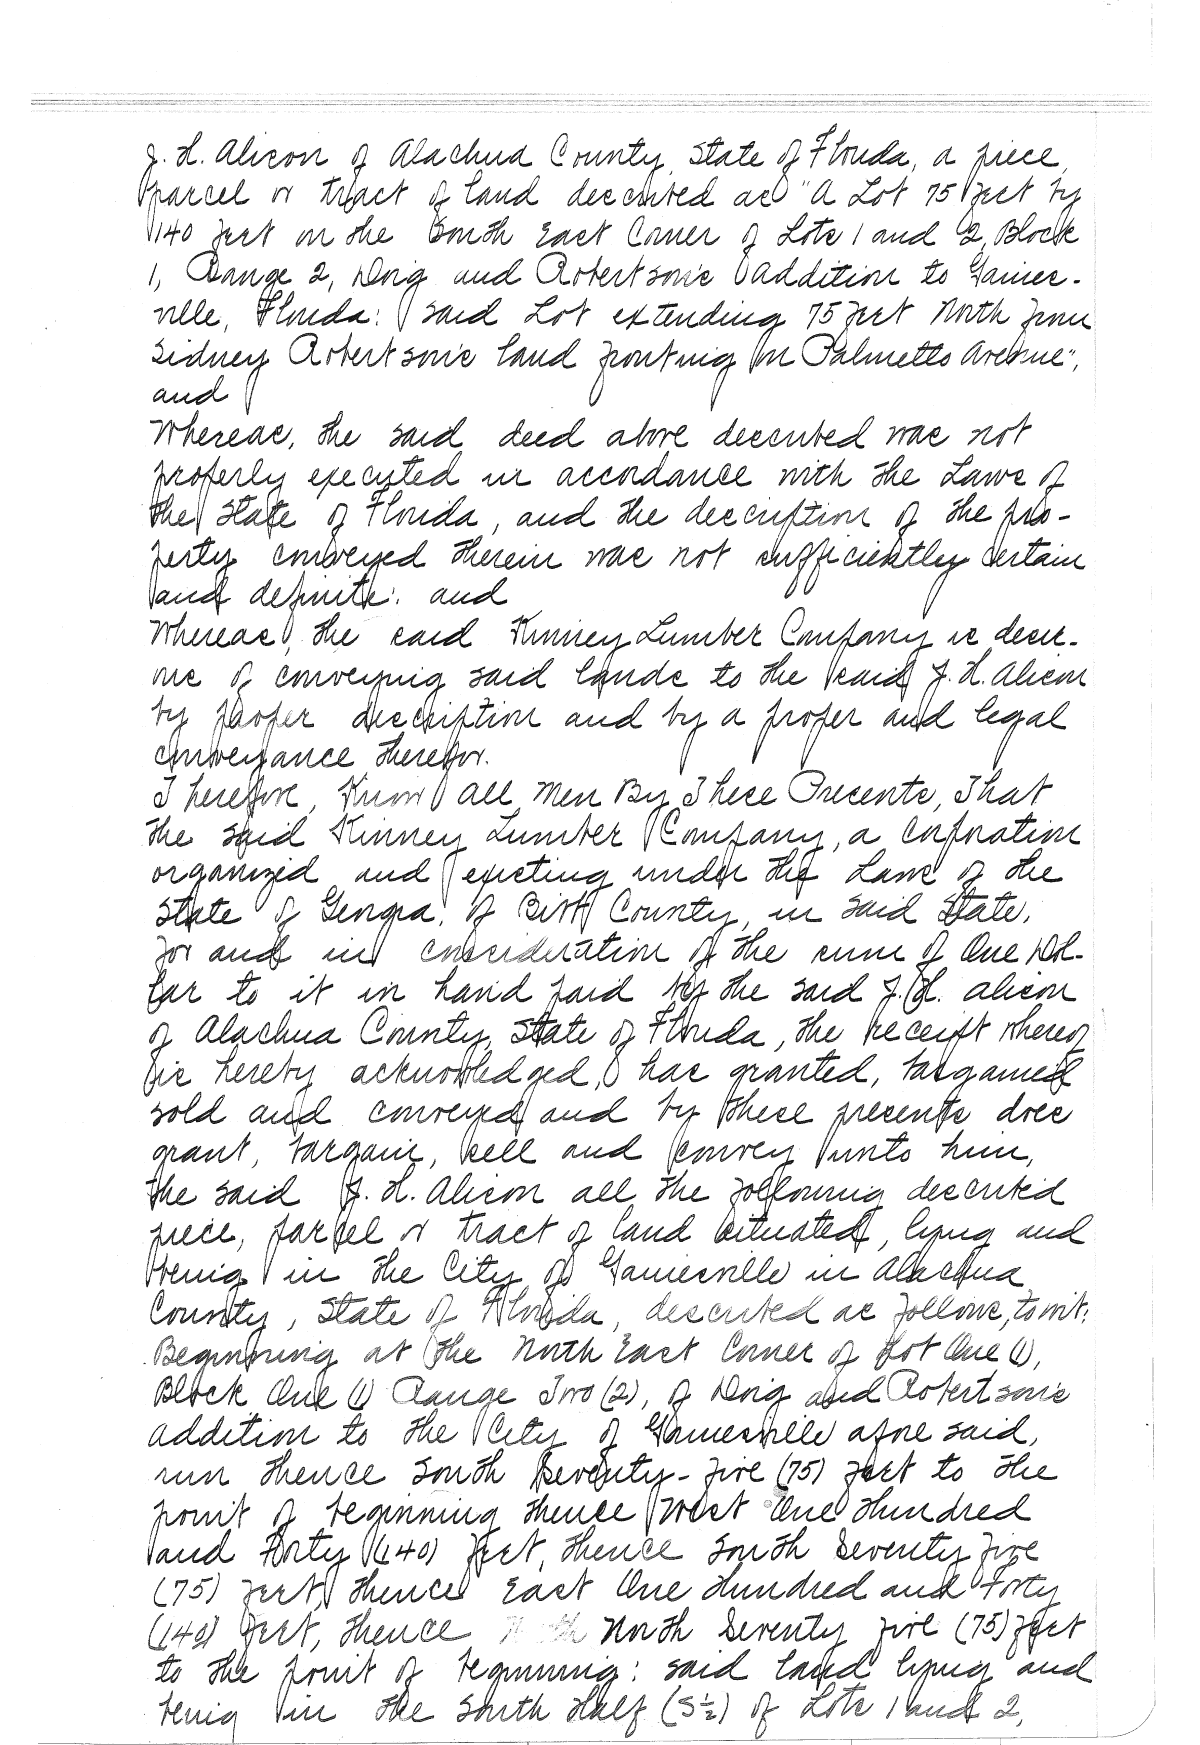 J. H. Alison of Alachua County, State of Florida, a piece,
parcel or tract of land described as "A Lot 75 feet by
140 feet on the South East Corner of Lots 1 and 2, Block
1, Range 2, Doig and Robertson's Addition to Gaines-
ville, Florida: said Lot extending 75 feet North from
Sidney Robertson's land fronting on Palmetto Avenue",
and
Whereas, the said deed above described was not
properly executed in accordance with the Laws of
the State of Florida, and the description of the pro-
perty conveyed therein was not sufficiently certain
and definite: and
Whereas, the said Kinney Lumber Company is desir-
ous of conveying said lands to the said J. H. Alison
by proper description and by a proper and legal
conveyance therefor.
Therefore, Know All Men By These Presents, That
the said Kinney Lumber Company, a corporation
organized and existing under the Laws of the
State of Georgia, of Bibb County, in said State,
for and in consideration of the sum of One Dol-
lar to it in hand paid by the said J. H. Alison
of Alachua County, State of Florida, the receipt whereof
is hereby acknowledged, has granted, bargained
sold and conveyed and by these presents does
grant, bargain, sell and convey unto him,
the said J. H. Alison all the following described
piece, parcel or tract of land situated, lying and
being in the City of Gainesville in Alachua
County, State of Florida, described as follows, towit:
Beginning at the North East Corner of Lot One (1),
Block One (1) Range Two (2), of Doig and Robertson's
addition to the City of Gainesville afore said,
run thence South Seventy-five (75) feet to the
point of beginning thence West One Hundred
and Forty (140) feet, thence South Seventy five
(75) feet, thence East One Hundred and Forty
(140) feet, thence North Seventy five (75) feet
to the point of beginning: said land lying and
being in the South Half (S½) of Lots 1 and 2,